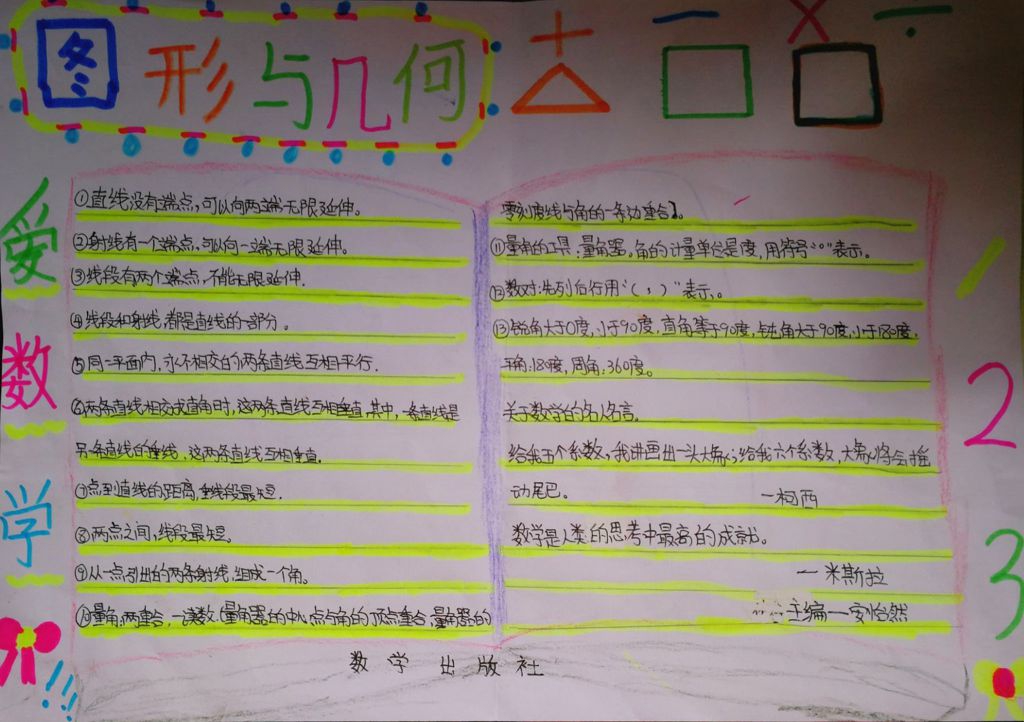 图形与几何
+ − × ÷
爱数学
!!!
1
2
3
①直线没有端点,可以向两端无限延伸。
②射线有一个端点,可以向一端无限延伸。
③线段有两个端点,不能无限延伸.
④线段和射线,都是直线的一部分。
⑤同一平面内,永不相交的两条直线互相平行.
⑥两条直线相交成直角时,这两条直线互相垂直,其中,一条直线是
另一条直线的垂线,这两条直线互相垂直.
⑦点到直线的距离,垂线段最短.
⑧两点之间,线段最短。
⑨从一点引出的两条射线,组成一个角。
⑩量角,两重合,一读数.(量角器的中心点与角的顶点重合,量角器的
零刻度线与角的一条边重合)。
⑪量角的工具:量角器。角的计量单位是度,用符号“°”表示。
⑫数对:先列后行用“( , )”表示。
⑬锐角大于0度,小于90度,直角等于90度,钝角大于90度,小于180度.
平角:180度,周角:360度。
关于数学的名人名言。
给我五个系数,我讲画出一头大象;给我六个系数,大象将会摇
动尾巴。 —柯西
数学是人类的思考中最高的成就。
—米斯拉
主编—安怡然
数学出版社